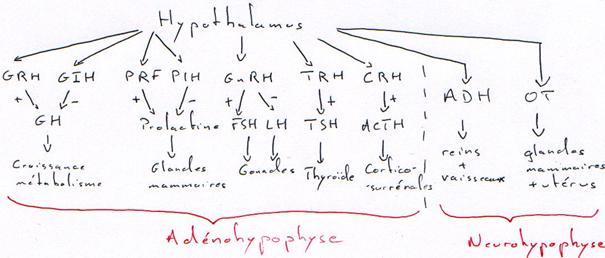 Hypothalamus
GRH GIH PRF PIH GnRH TRH CRH
+ - + - + - + + ADH OT
GH Prolactine FSH LH TSH ACTH
reins + vaisseaux
glandes mammaires + utérus
Croissance métabolisme
Glandes mammaires
Gonades
Thyroïde
Cortico-surrénales
Adénohypophyse Neurohypophyse